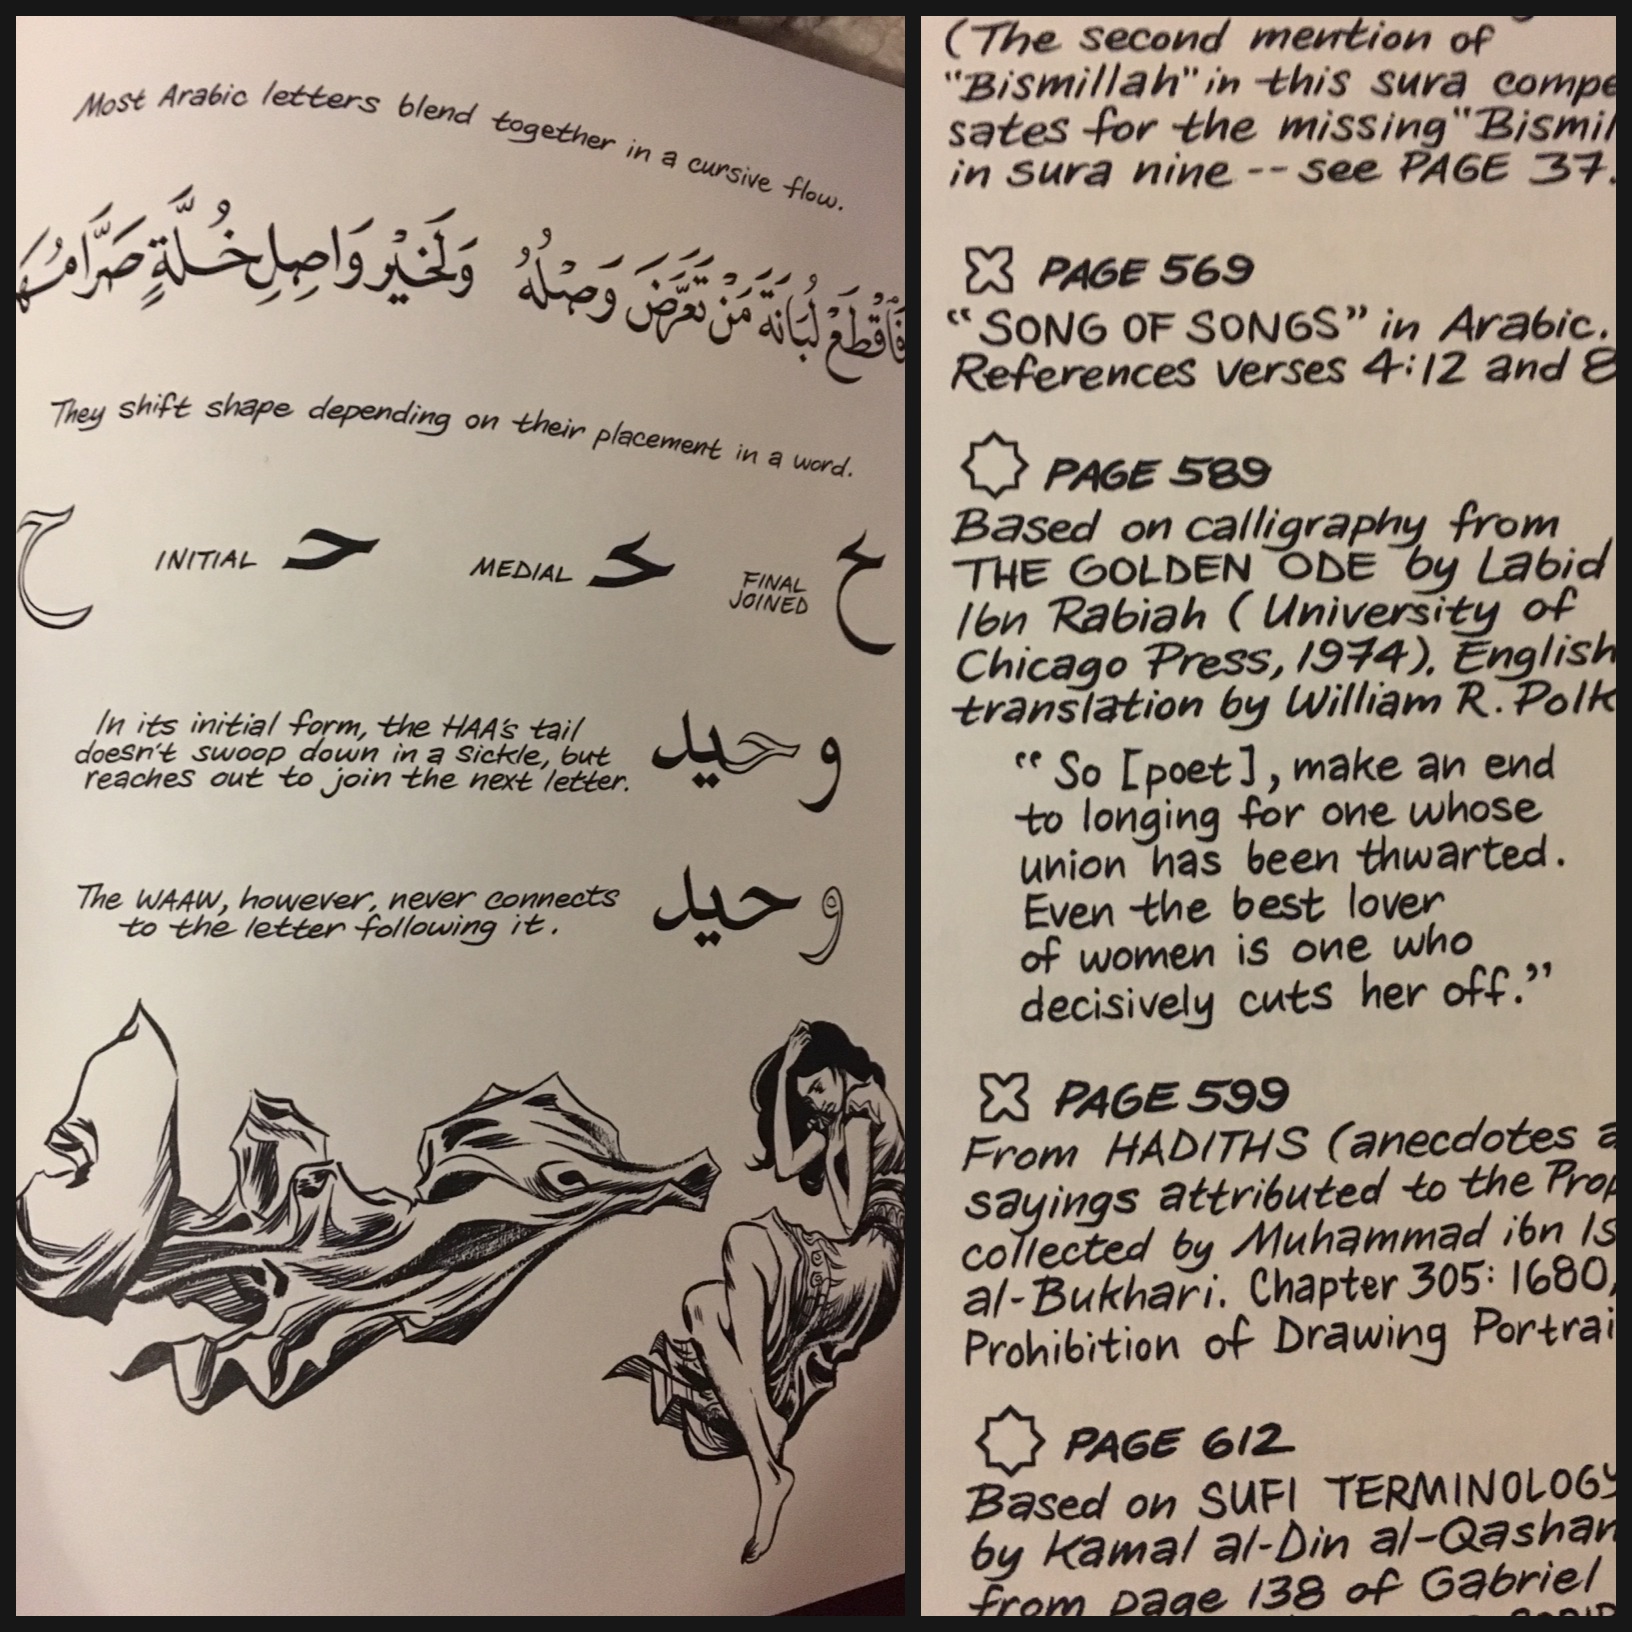 Most Arabic letters blend together in a cursive flow.
فَاقْطَعْ لُبَانَةَ مَنْ تَعَرَّضَ وَصْلُهُ وَلَخَيْرُ وَاصِلِ خُلَّةٍ صَرَّامُهَا
They shift shape depending on their placement in a word.
ح INITIAL حـ MEDIAL ـحـ FINAL JOINED ـح
In its initial form, the HAA's tail
doesn't swoop down in a sickle, but
reaches out to join the next letter.
وحيد
The WAAW, however, never connects
to the letter following it.
وحيد
(The second mention of
"Bismillah" in this sura compe
sates for the missing "Bismil
in sura nine -- see PAGE 37.
PAGE 569
"SONG OF SONGS" in Arabic.
References verses 4:12 and 8
PAGE 589
Based on calligraphy from
THE GOLDEN ODE by Labid
Ibn Rabiah (University of
Chicago Press, 1974). English
translation by William R. Polk
"So [poet], make an end
to longing for one whose
union has been thwarted.
Even the best lover
of women is one who
decisively cuts her off."
PAGE 599
From HADITHS (anecdotes a
sayings attributed to the Prop
collected by Muhammad ibn Is
al-Bukhari. Chapter 305: 1680,
Prohibition of Drawing Portrai
PAGE 612
Based on SUFI TERMINOLOGY
by Kamal al-Din al-Qashan
from page 138 of Gabriel